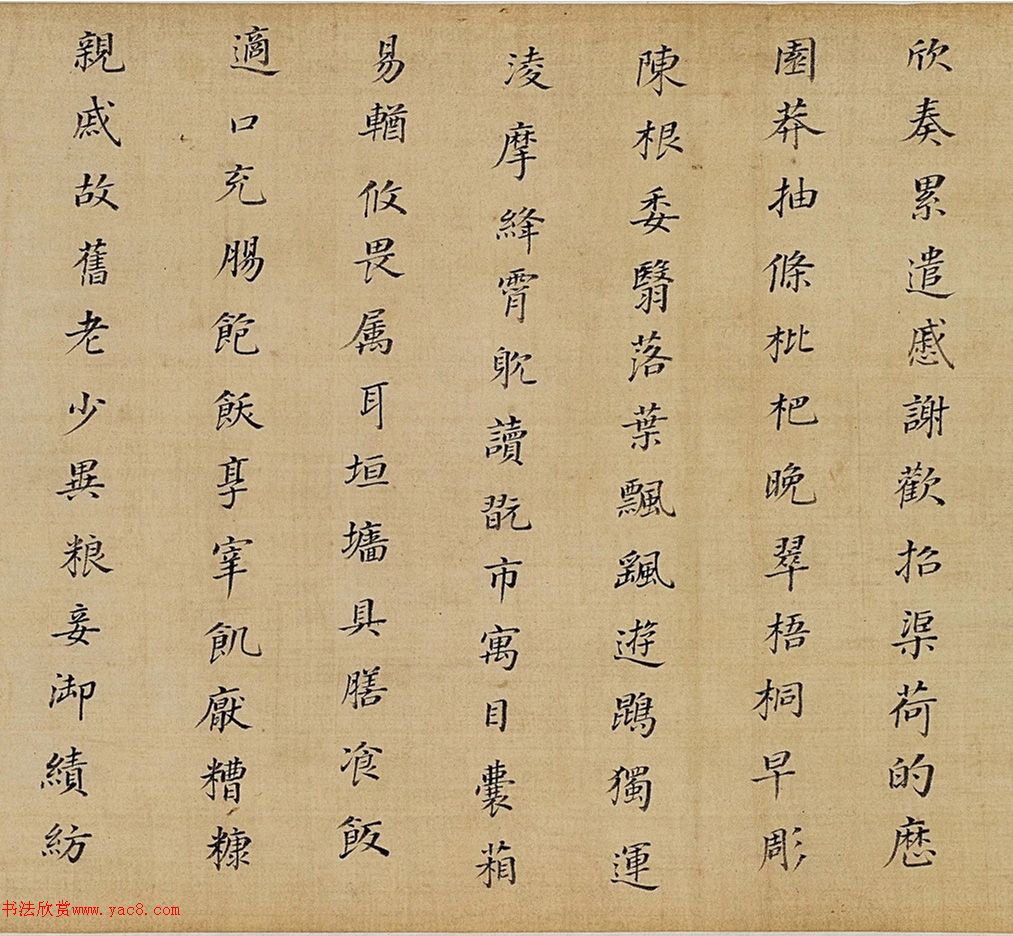 欣奏累遣慼謝歡招渠荷的歷
園莽抽條枇杷晚翠梧桐早彫
陳根委翳落葉飄颻遊鵾獨運
淩摩絳霄躭讀翫市寓目囊箱
易輶攸畏属耳垣墻具膳飡飯
適口充腸飽飫享宰飢厭糟糠
親戚故舊老少異粮妾御績紡
书法欣赏www.yac8.com